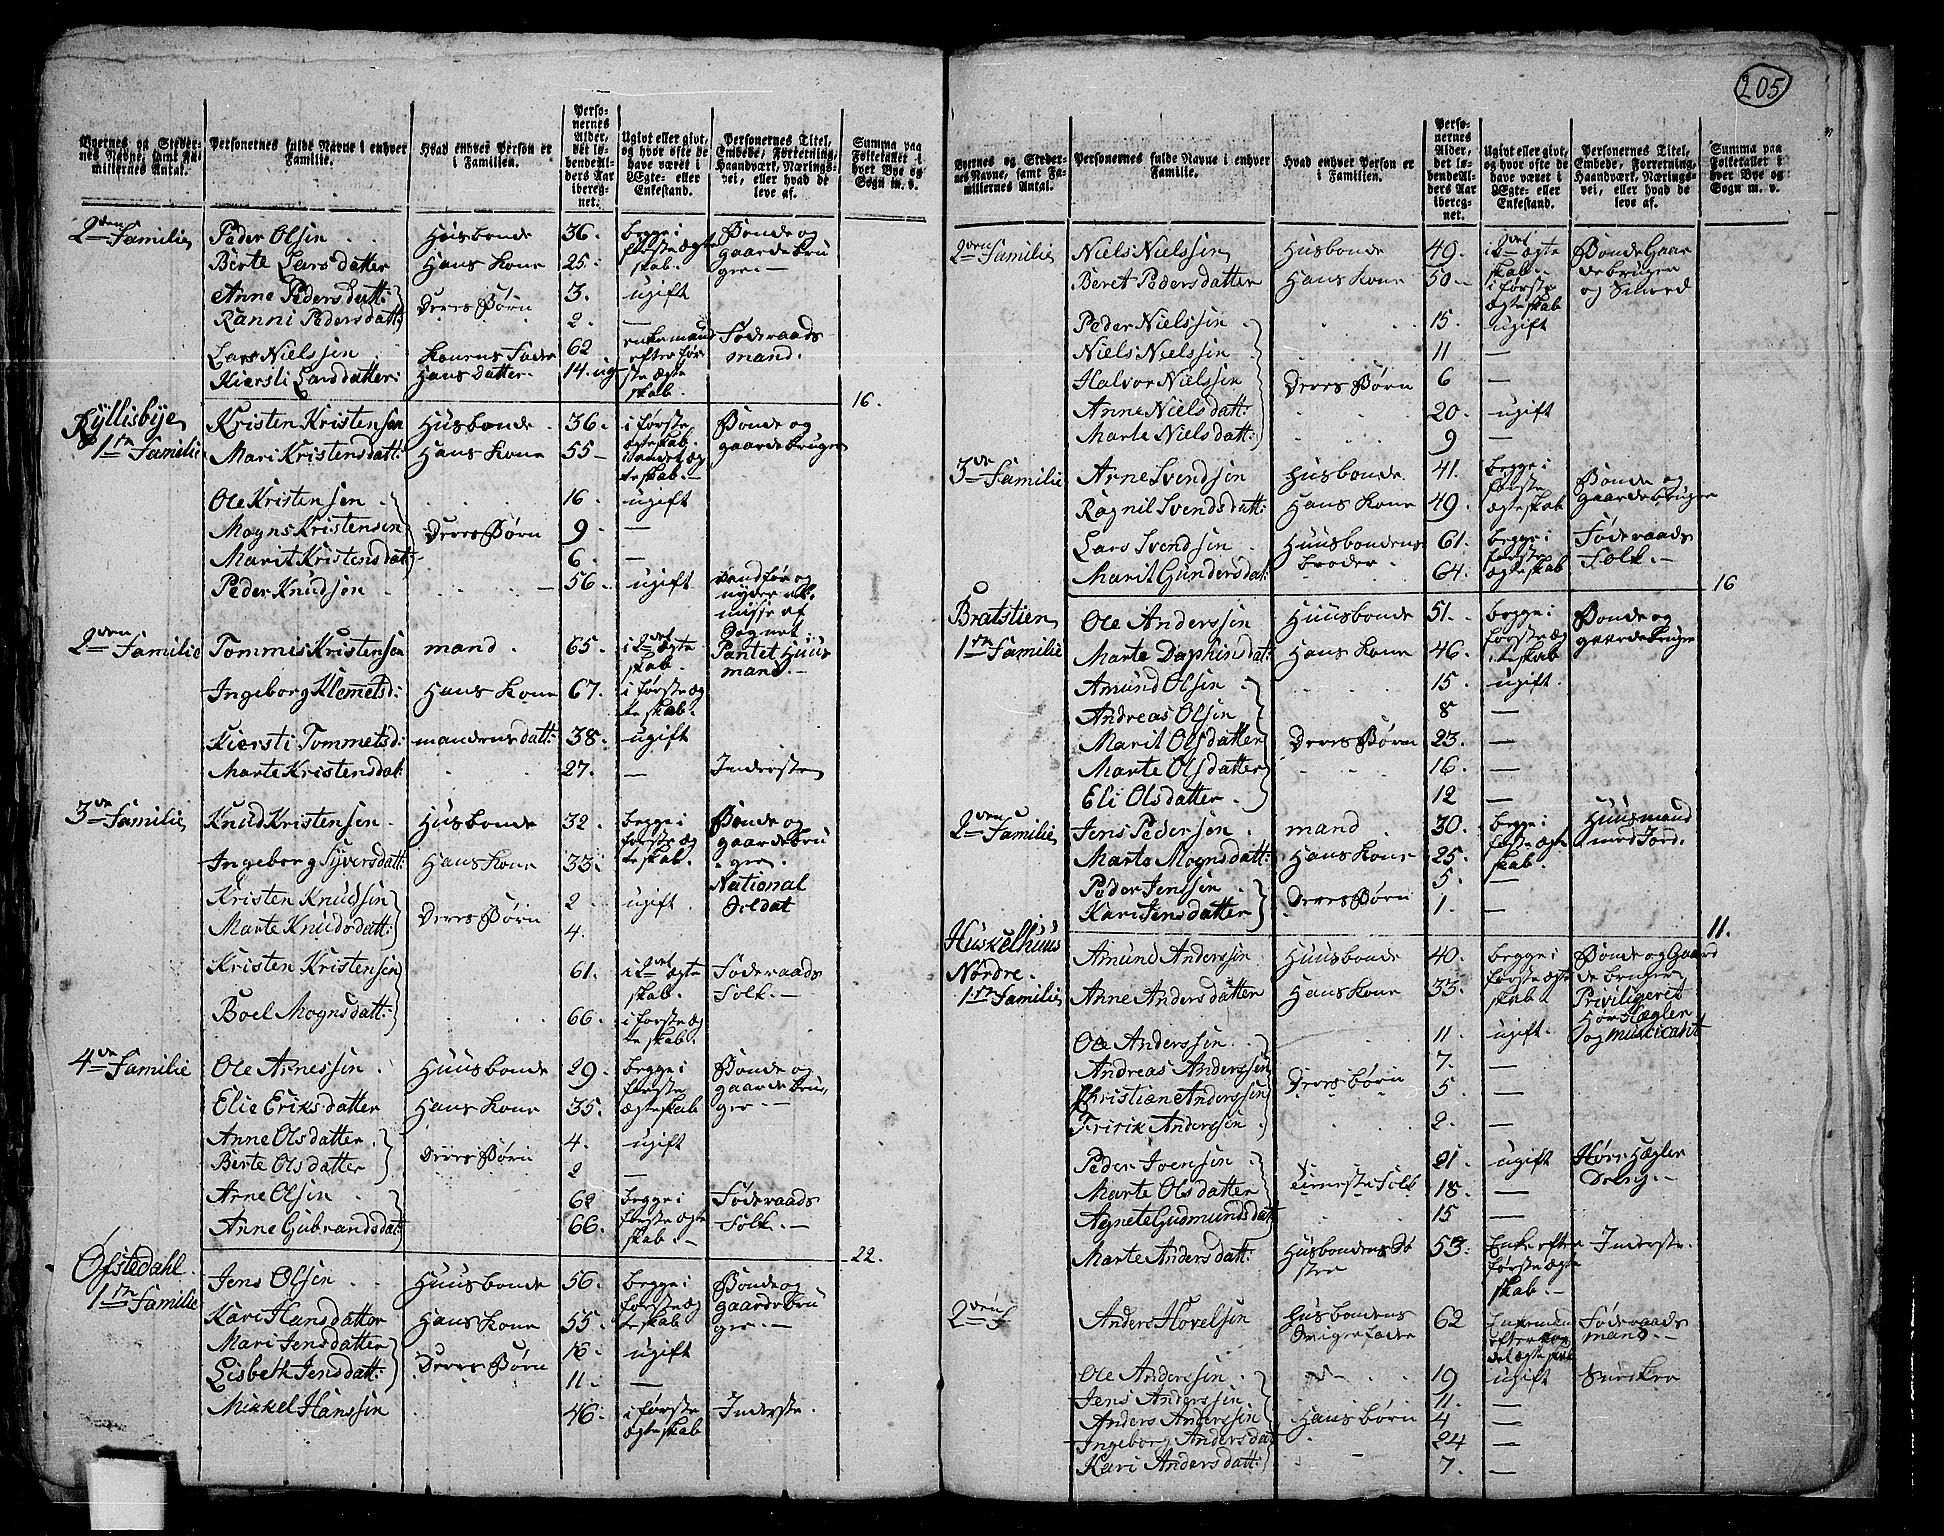 205
Byernes og Stedernes Navne, samt Familiernes Antal.
Personernes fulde Navne i enhver Familie.
Hvad enhver Person er i Familien.
Personernes Alder, det løbende Alders Aar iberegnet.
Ugivt eller givt, og hvor ofte de have været i Ægte- eller Enkestand.
Personernes Titel, Embede, Forretning, Haandværk, Næringsvei, eller hvad de leve af.
Summa paa Folketallet i hver Bye og Sogn m. v.
2den Familie Peder Olsen Husbonde 36. begge i første ægteskab. Bonde og gaardebruger
Berte Larsdatter Hans Kone 25.
Anne Pedersdatt: Deres Børn 3. ugift
Ranni Pedersdatt: 2. —
Lars Nielssen Konens Fader 62 enkemand efter første ægteskab. Føderaads mand.
Kiersti Larsdatter: Hans datter. 14. ug
16.
Ryllisbye
1ste Familie Kristen Kristensen Husbonde 36. i første ægteskab. Bonde og gaardebruger
Mari Kristensdatt: Hans Kone 55 i andet ægteskab.
Ole Kristensen 16. ugift
Mogns Kristensen Deres Børn 9. —
Marit Kristensdat: 6. —
Peder Knudsen 56. ugift
2den Familie Tommis Kristensen mand. 65. i 2det ægteskab. Pantet Huusmand.
Ingeborg Klemetsd: Hans Kone 67. i første ægteskab.
Kiersti Tommetsd: mandens datt: 38. ugift
Marte Kristensdat: 27. — Inderste
3de Familie Knud Kristensen Husbonde 32. begge i første ægteskab. Bonde og gaardebruger. National Soldat
Ingeborg Syversdatt: Hans Kone 33.
Kristen Knudsen Deres Børn 2. ugift.
Marte Knudsdatt: 4.
Kristen Kristensen 61. i 2det ægteskab. Føderaads Folk.
Boel Mognsdatt: 66. i første ægteskab.
4de Familie Ole Arnessen Huusbonde 29. begge i første ægteskab Bonde og gaardebruger
Elie Eriksdatter Hans Kone 35.
Anne Olsdatter Deres Børn 4. ugift
Berte Olsdatter 2 —
Arne Olsen 62 begge i første ægteskab. Føderaads Folk.
Anne Gubrandsdat: 66.
22.
Ofstedahl
1ste Familie Jens Olsen Huusbonde 56. begge i første ægteskab Bonde og gaardebruger
Kari Hansdatter Hans Kone 55.
Mari Jensdatter Deres Børn 16. ugift
Lisbeth Jensdatt: 11. —
Mikkel Hanssen 46. i første ægteskab Inderste.
Byernes og Stedernes Navne, samt Familiernes Antal.
Personernes fulde Navne i enhver Familie.
Hvad enhver Person er i Familien.
Personernes Alder, det løbende Alders Aar iberegnet.
Ugivt eller givt, og hvor ofte de have været i Ægte- eller Enkestand.
Personernes Titel, Embede, Forretning, Haandværk, Næringsvei, eller hvad de leve af.
Summa paa Folketallet i hver Bye og Sogn m. v.
2den Familie Niels Nielssen Husbonde 49. i 2det ægteskab. Bonde Gaardebruger og Smed
Beret Pedersdatter Hans Kone 50 i første ægteskab
Peder Nielssen 15. ugift
Niels Nielssen 11 —
Halvor Nielssen Deres Børn 6 —
Anne Nielsdatt: 20. ugift
Marte Nielsdatt: 9 —
3de Familie Arne Svendsen Husbonde. 41. begge i første ægteskab Bonde og gaardebruger
Ragnil Svendsdatt: Hans Kone 49.
Lars Svendsen Huusbondens broder. 61. begge i første ægteskab Føderaads Folk.
Marit Gundersdat: 64.
16
Bratstien
1ste Familie Ole Anderssen Huusbonde 51. begge i første ægteskab Bonde og gaardebruger
Marte Daphinsdat: Hans Kone 46.
Amund Olsen 15. ugift.
Andreas Olsen 8 —
Marit Olsdatter Deres Børn 23. —
Marte Olsdatter 16. —
Eli Olsdatter 12 —
2den Familie Jens Pedersen mand 30. begge i første ægteskab. Huusmand med Jord.
Marte Mognsdatt: Hans Kone 25.
Peder Jenssen Deres Børn 5. —
Kari Jensdatter 1. —
11.
Huskelhuus Nordre.
1ste Familie Amund Anderssen Huusbonde 40. begge i første ægteskab Bonde og Gaardebruger Priviligerit Hørhægler og musicant
Anne Andersdatter Hans Kone 33.
Ole Anderssen 11. ugift.
Andreas Anderssen 7. —
Christian Anderssen Deres børn 5. —
Fririk Anderssen 2. —
Peder Joensen 21. ugift Hørhægler
Marte Olsdatter Tieneste Folk 18. —
Agnete Gudmundsdat 15 —
Marte Andersdatt: Husbondens Søster 53. Enke efter første ægteskab. Inderste.
2den F Anders Hovelsen Husbondens 62 Føderaads mand.
Ole Anderssen 19 ugift Snedker
Jens Anderssen. 11. —
Anders Anderssen Hans børn 4 —
Ingeborg Andersdat 24 —
Kari Andersdatt: 7. —